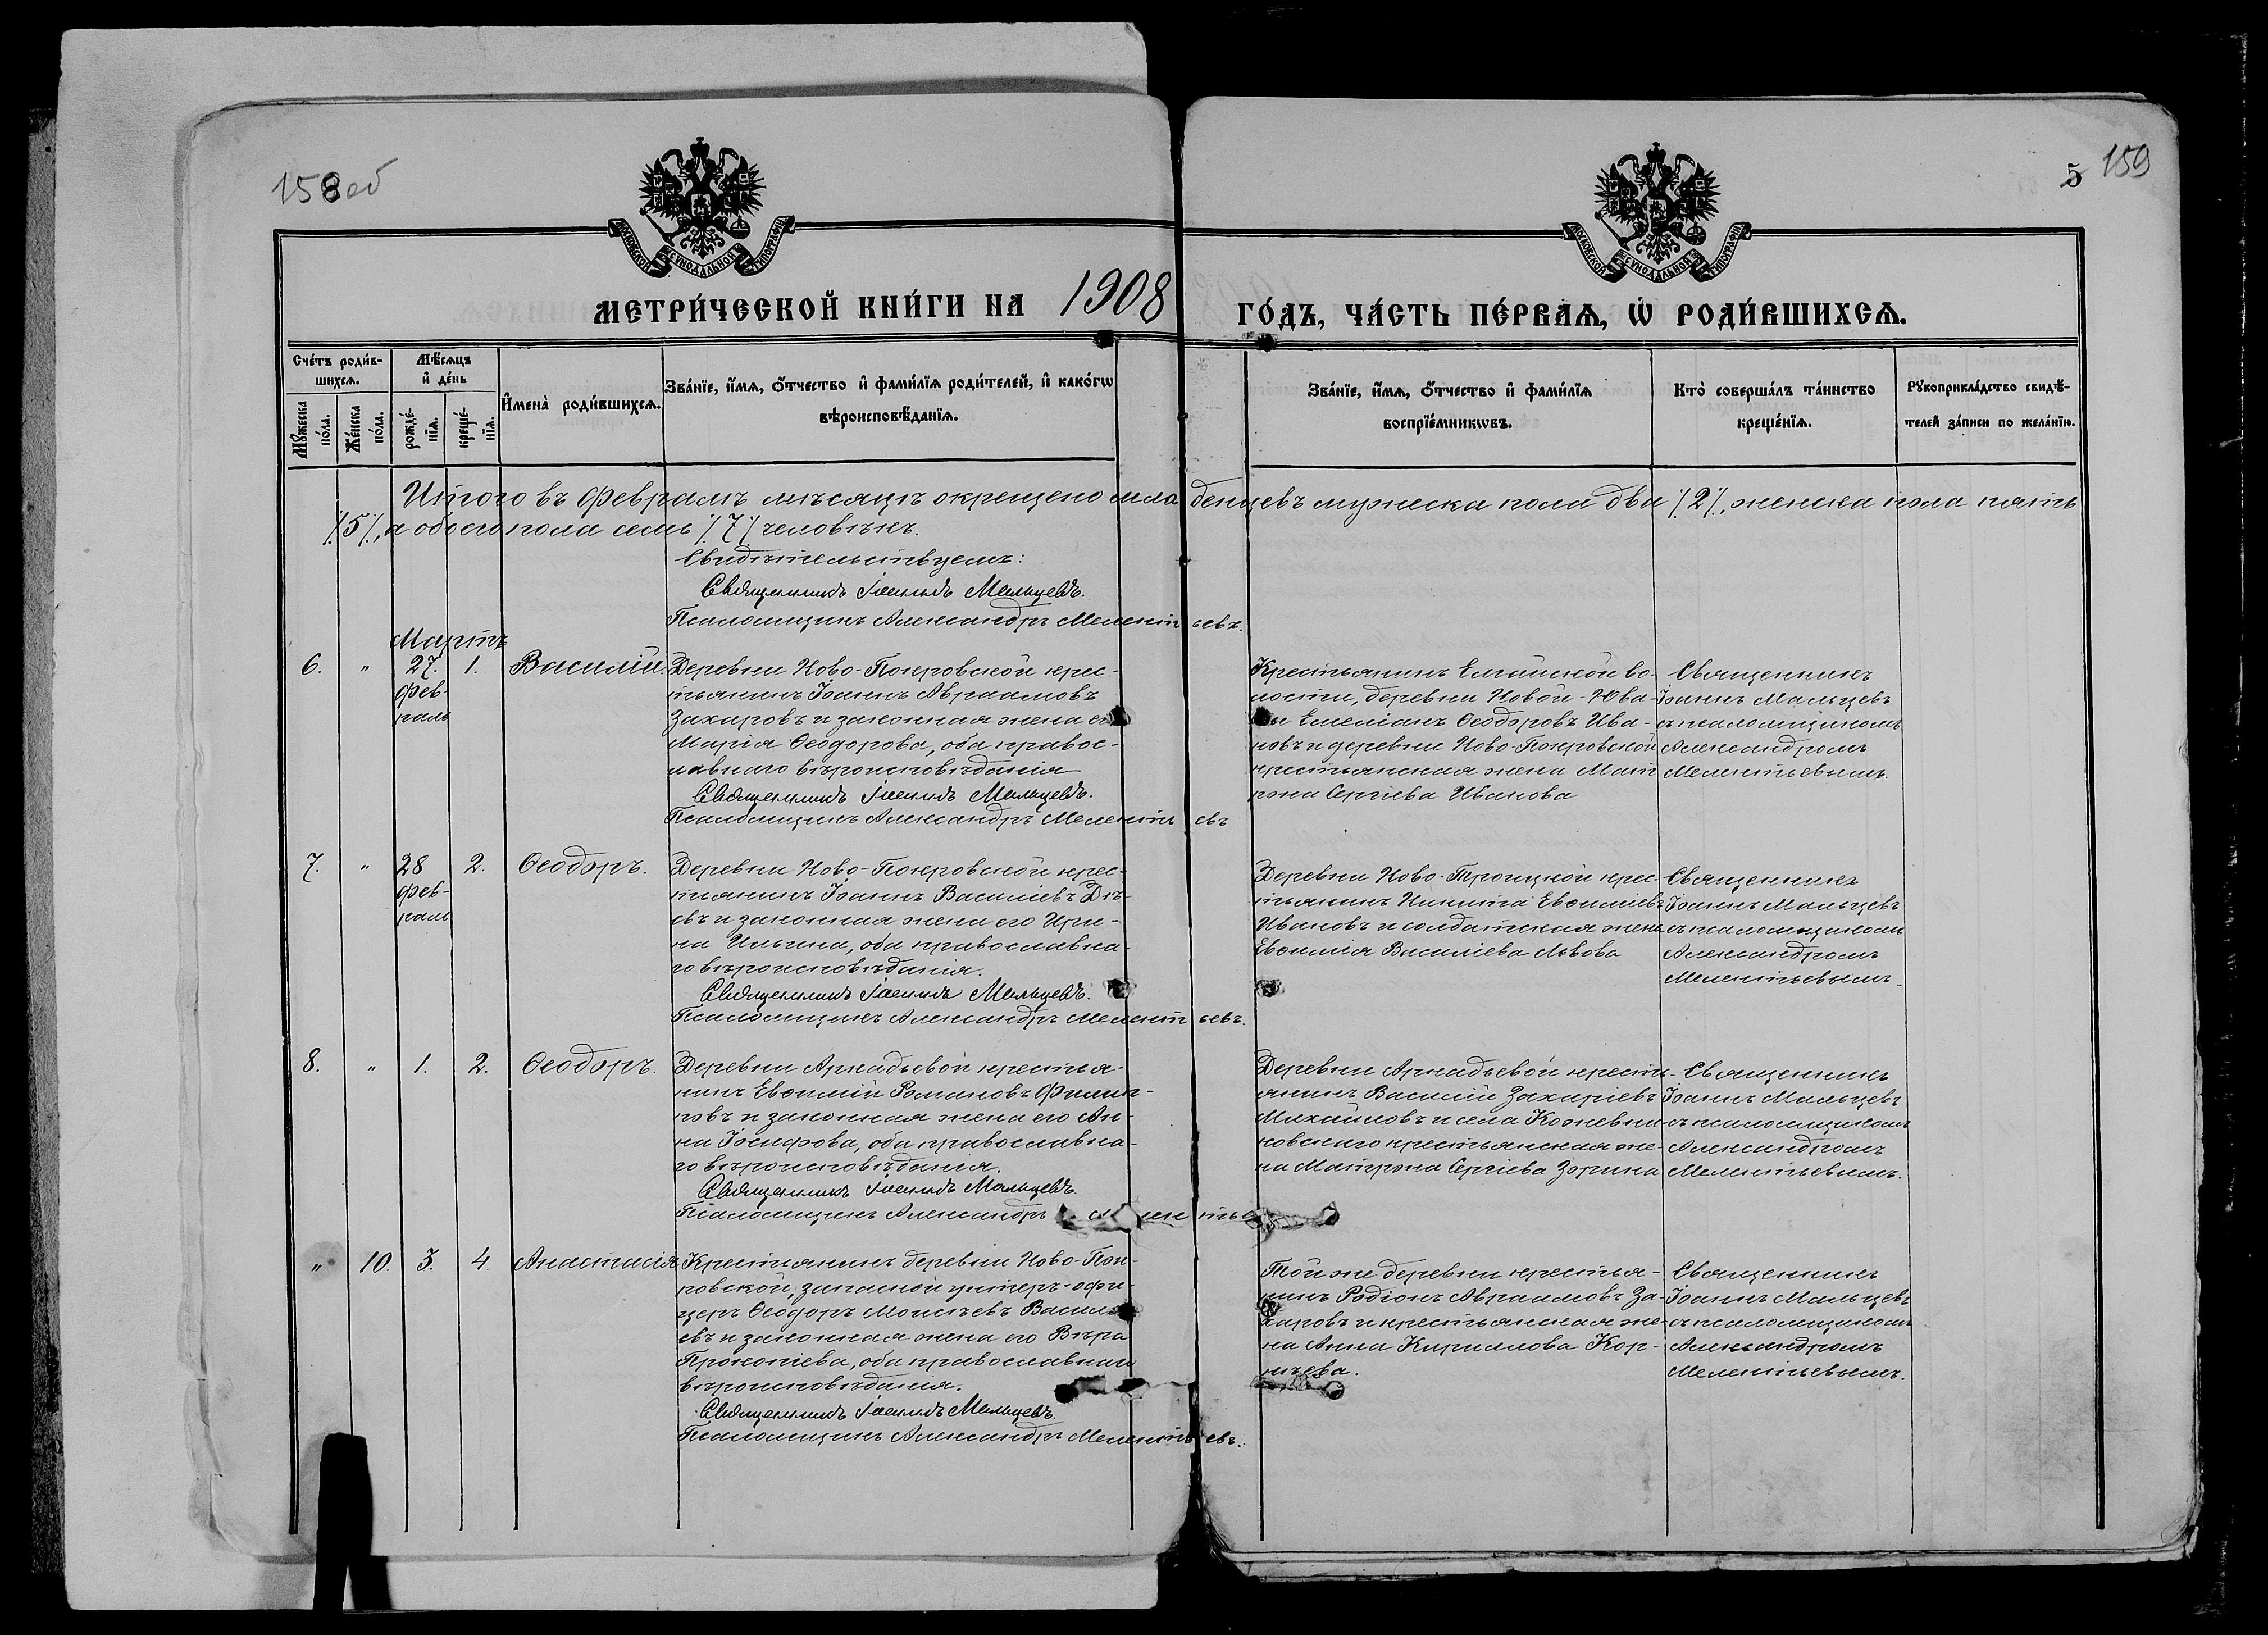 158 об
5 159
МОСКОВСКОЙ СѴНОДАЛЬНОЙ ТИПОГРАФІИ
МОСКОВСКОЙ СѴНОДАЛЬНОЙ ТИПОГРАФІИ
МЕТРИ́ЧЕСКОЙ КНИ́ГИ НА 1908 ГО́ДЪ, ЧА́СТЬ ПЕ́РВАѦ, Ѡ РОДИ́ВШИХСѦ.
Сче́тъ роди́в-
шихсѧ.
Мꙋ́жеска
по́ла.
Же́нска
по́ла.
Мѣ́сѧцъ
и де́нь
рожде́-
нїѧ.
креще́-
нїѧ.
Имена̀ роди́вшихсѧ.
Зва́нїе, и́мѧ, ѻ́тчество и фами́лїѧ роди́телей, и како́гѡ
вѣроисповѣ́данїѧ.
Зва́нїе, и́мѧ, ѻ́тчество и фами́лїѧ
воспрїе́мникѡвъ.
Кто̀ соверша́лъ та́инство
креще́нїѧ.
Рꙋкоприкла́дство свидѣ́-
телей за́писи по жела́нїю.
Итого въ Февралѣ мѣсяцѣ окрещено младенцевъ мужеска пола два /2/, женска пола пять
/5/, а обоего пола семь /7/ человѣкъ.
Свидѣтельствуемъ:
Священникъ Іоаннъ Мальцевъ.
Псаломщикъ Александръ Мелентьевъ.
Мартъ
6. " 27. 1. Василій.
фев-
раль
Деревни Ново-Покровской крес-
тьянинъ Іоаннъ Авраамовъ
Захаровъ и законная жена его
Марія Ѳеодорова, оба правос-
лавнаго вѣроисповѣданія
Священникъ Іоаннъ Мальцевъ.
Псаломщикъ Александръ Мелентьевъ
Крестьянинъ Елгайской во-
лости, деревни Новой-Юва-
лы Емеліанъ Ѳеодоровъ Ива-
новъ и деревни Ново-Покровской
крестьянская жена Мат
рона Сергіева Иванова
Священникъ
Іоаннъ Мальцевъ
съ псаломщикомъ
Александромъ
Мелентьевымъ.
7. " 28 2. Ѳеодоръ.
фев-
раль
Деревни Ново-Покровской крес-
тьянинъ Іоаннъ Василіевъ Дѣ-
евъ и законная жена его Ири-
на Ильина, оба православна-
го вѣроисповѣданія.
Священникъ Іоаннъ Мальцевъ.
Псаломщикъ Александръ Мелентьевъ.
Деревни Ново-Троицкой крес-
тьянинъ Никита Евѳиміевъ
Ивановъ и солдатская жена
Евѳимія Василіева Львова
Священникъ
Іоаннъ Мальцевъ
съ псаломщикомъ
Александромъ
Мелентьевымъ.
8. " 1. 2. Ѳеодоръ.
Деревни Аркадьевой крестья-
нинъ Евѳимій Романовъ Филип-
повъ и законная жена его Ан-
на Іосифова, оба православна-
го вѣроисповѣданія.
Священникъ Іоаннъ Мальцевъ.
Псаломщикъ Александръ
Деревни Аркадьевой кресть-
янинъ Василій Захаріевъ
Михайловъ и села Кожевни-
ковскаго крестьянская же-
на Матрона Сергіева Зорина
Священникъ
Іоаннъ Мальцевъ
съ псаломщикомъ
Александромъ
Мелентьевымъ.
" 10. 3. 4 Анастасія
Крестьянинъ деревни Ново-Пок-
ровской, запасной унтеръ-офи-
церъ Ѳеодоръ Моисѣевъ Василь-
евъ и законная жена его Вѣра
Прокопіева, оба православнаго
вѣроисповѣданія.
Священникъ Іоаннъ Мальцевъ.
Псаломщикъ Александръ Мелентьевъ.
Той же деревни крестья-
нинъ Родіонъ Авраамовъ За-
харовъ и крестьянская же-
на Анна Кириллова Кор-
нѣева.
Священникъ
Іоаннъ Мальцевъ
съ псаломщикомъ
Александромъ
Мелентьевымъ.